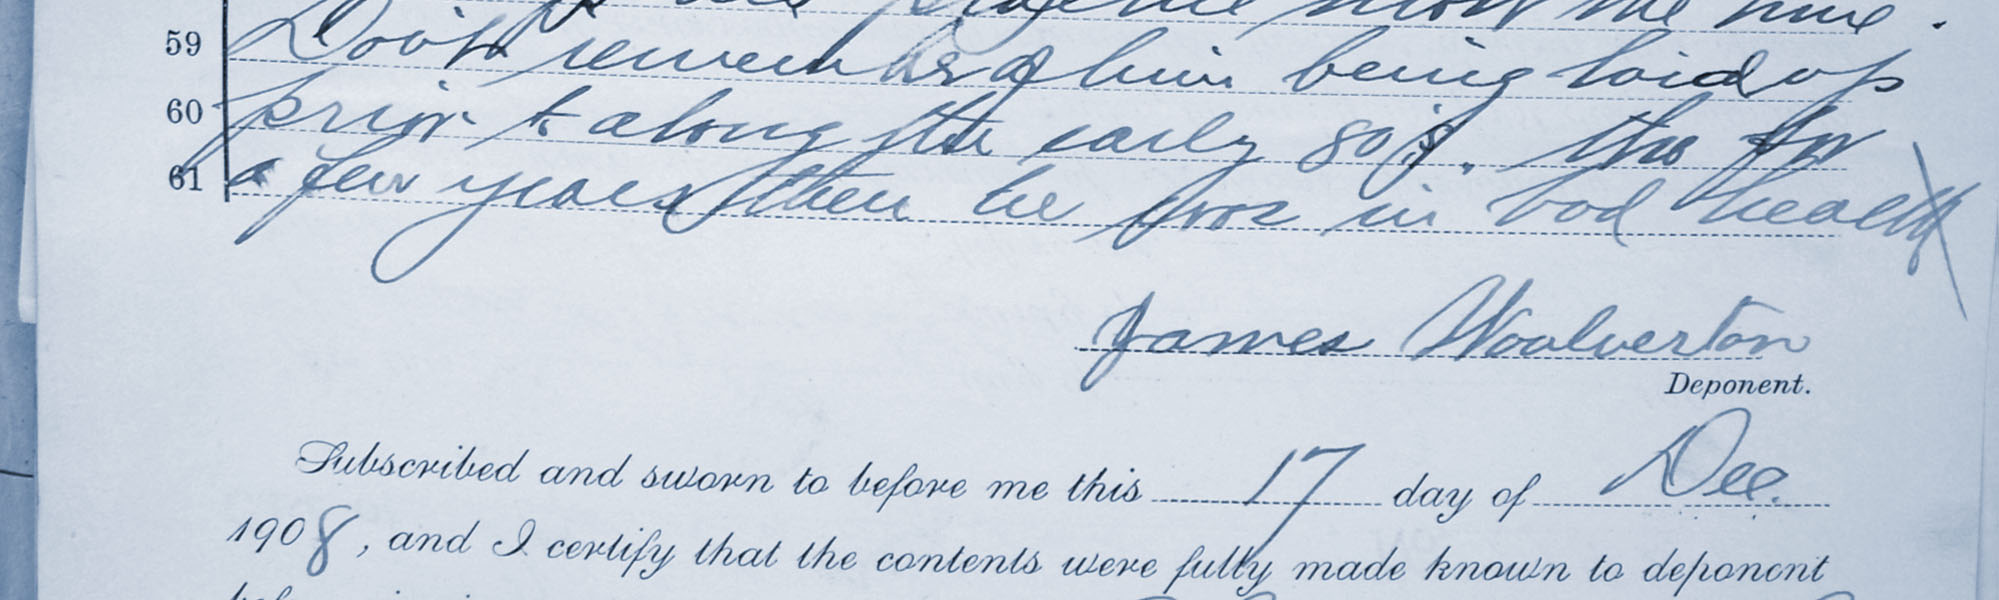 the time.
59 Don't remember of him being laid up
60 prior to along the early 80's. tho for
61 a few years then he was in bad health
James Woolverton
Deponent.
Subscribed and sworn to before me this 17 day of Dec.
1908, and I certify that the contents were fully made known to deponent